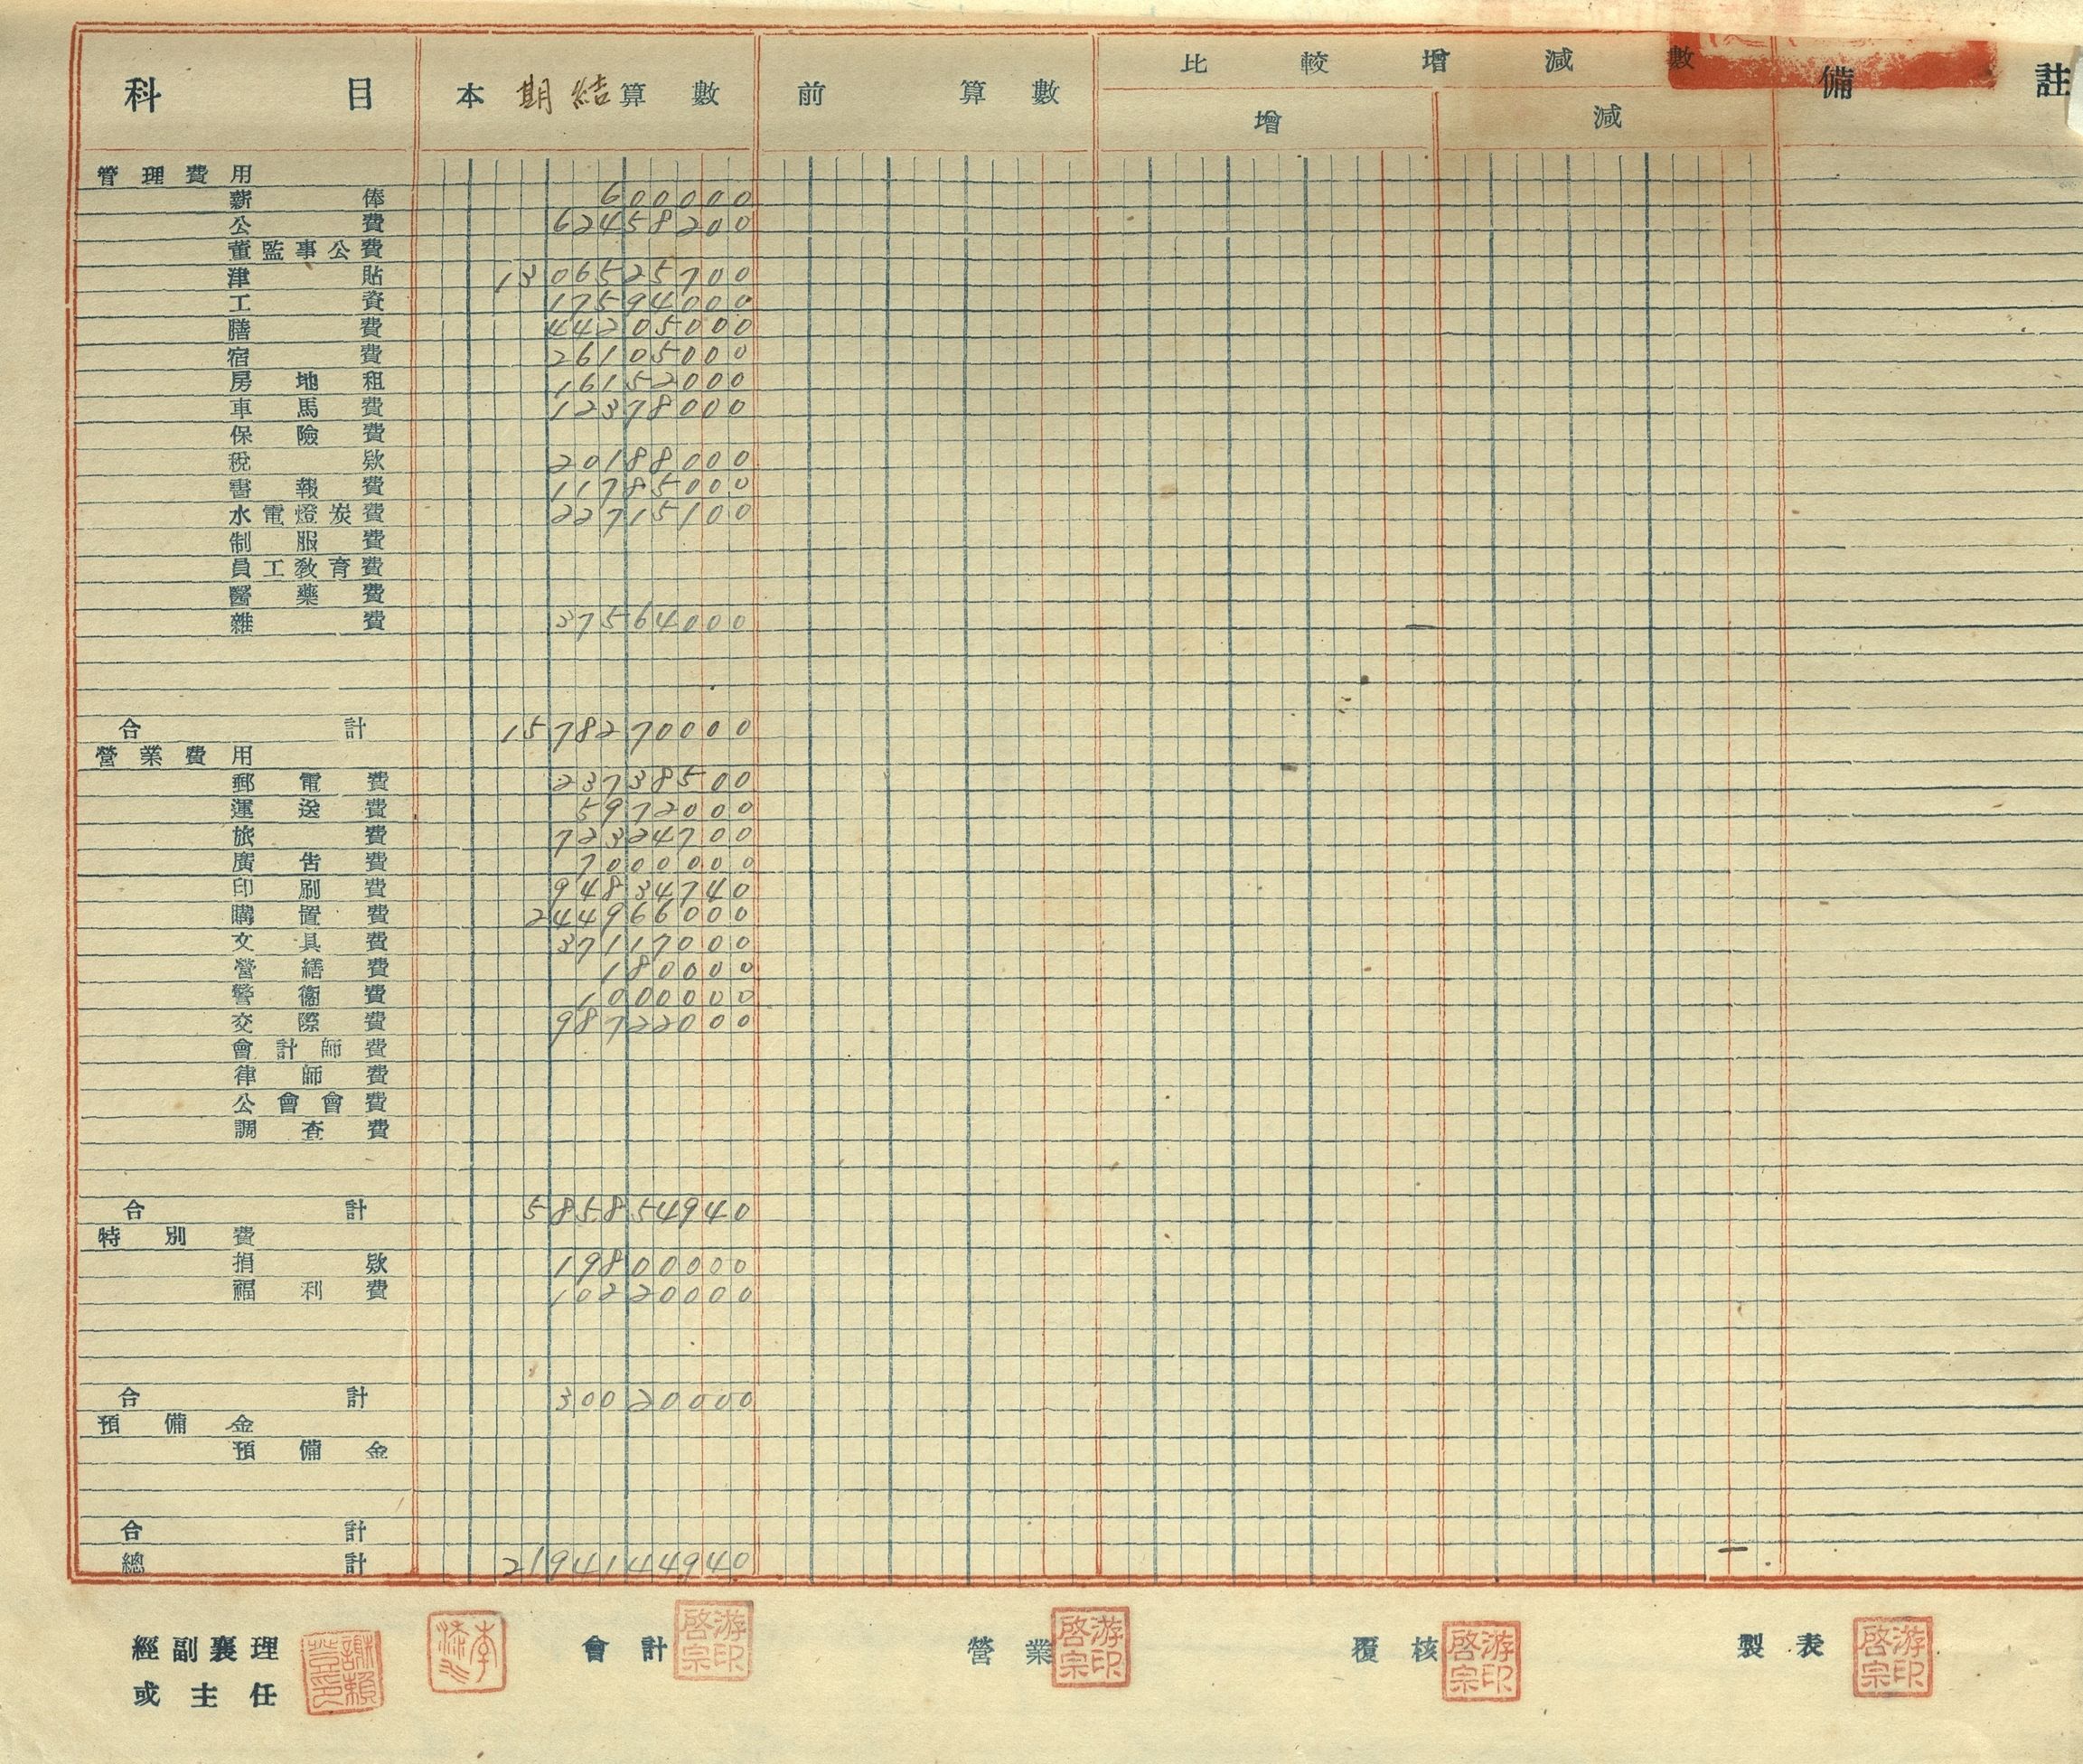 科目 本期結算數 前 算數 比較增減數 備註
增 減
管理費用
薪俸 600000
公費 62458200
董監事公費
津貼 1306525700
工資 17594000
膳費 44205000
宿費 26105000
房地租 16152000
車馬費 12378000
保險費
稅款 20188000
書報費 11785000
水電燈炭費 22715100
制服費
員工教育費
醫藥費
雜費 37564000
合計 1578270000
營業費用
郵電費 23738500
運送費 5972000
旅費 72324700
廣告費 7000000
印刷費 94834740
購置費 244966000
文具費 37117000
營繕費 180000
警衞費 1000000
交際費 98722000
會計師費
律師費
公會會費
調查費
合計 585854940
特別費
捐款 19800000
福利費 10220000
合計 30020000
預備金
預備金
合計
總計 2194144940
經副襄理 會計 營業 覆核 製表
或主任
游啓宗印
游啓宗印
游啓宗印
游啓宗印